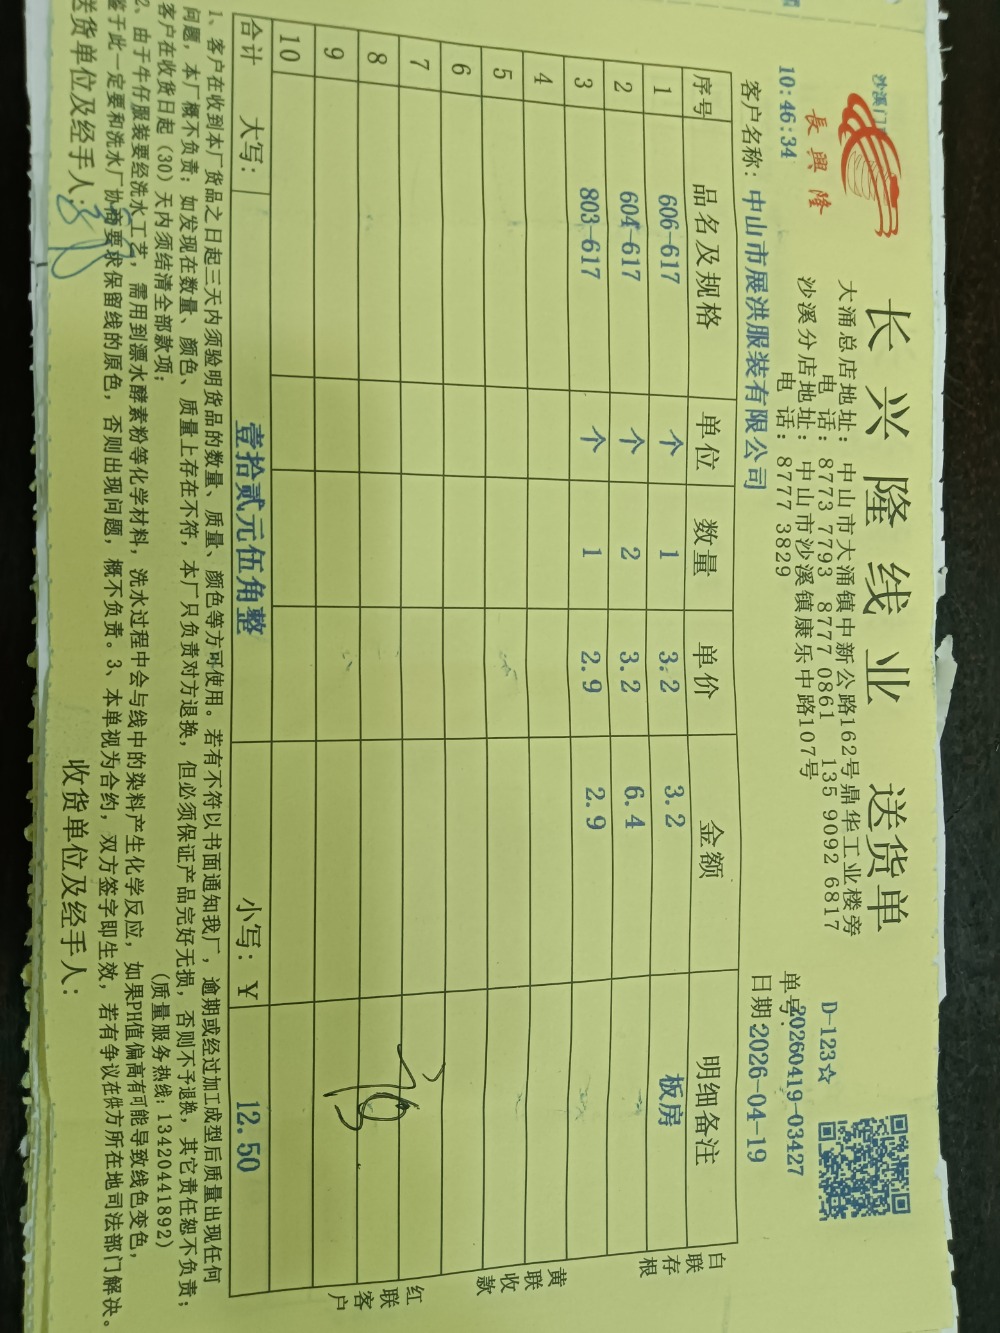 长兴隆线业 送货单
沙溪门
長興隆
大涌总店地址：中山市大涌镇中新公路162号鼎华工业楼旁
电 话：8773 7793 8777 0861 135 9092 6817
沙溪分店地址：中山市沙溪镇康乐中路107号
电 话：8777 3829
10:46:34
D-123☆
单号：20260419-03427
客户名称：中山市展洪服装有限公司
日期 2026-04-19
序号 品名及规格 单位 数量 单价 金额 明细备注
1 606-617 个 1 3.2 3.2 板房
2 604-617 个 2 3.2 6.4
3 803-617 个 1 2.9 2.9
4
5
6
7
8
9
10
合计 大写： 壹拾贰元伍角整 小写：¥ 12.50
白联存根
黄联收款
红联客户
1、客户在收到本厂货品之日起三天内须验明货品的数量、质量、颜色等方可使用。若有不符以书面通知我厂，逾期或经过加工成型后质量出现任何
问题，本厂概不负责；如发现在数量、颜色、质量上存在不符，本厂只负责对方退换，但必须保证产品完好无损，否则不予退换，其它责任恕不负责；
客户在收货日起（30）天内须结清全部款项；
（质量服务热线：13420441892）
2、由于牛仔服装要经洗水工艺，需用到漂水酵素粉等化学材料，洗水过程中会与线中的染料产生化学反应，如果PH值偏高有可能导致线色变色，
鉴于此一定要和洗水厂协商要求保留线的原色，否则出现问题，概不负责。3、本单视为合约，双方签字即生效，若有争议在供方所在地司法部门解决。
送货单位及经手人：
收货单位及经手人：